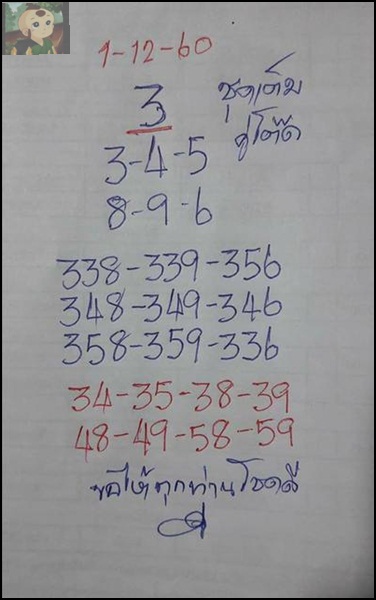 1-12-60
3 ชุดเต็ม
3-4-5 คู่โต๊ด
8-9-6
338-339-356
348-349-346
358-359-336
34-35-38-39
48-49-58-59
ขอให้ทุกท่านโชคดี